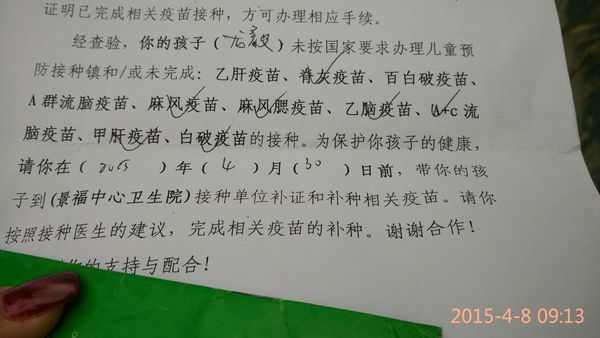 证明已完成相关疫苗接种，方可办理相应手续。
经查验，你的孩子（龙毅）未按国家要求办理儿童预
防接种镇和/或未完成：乙肝疫苗、脊灰疫苗、百白破疫苗、
A群流脑疫苗、麻风疫苗、麻风腮疫苗、乙脑疫苗、A+c流
脑疫苗、甲肝疫苗、白破疫苗的接种。为保护你孩子的健康，
请你在（2015）年（4）月（30）日前，带你的孩
子到(景福中心卫生院)接种单位补证和补种相关疫苗。请你
按照接种医生的建议，完成相关疫苗的补种。谢谢合作！
你的支持与配合！
2015-4-8 09:13